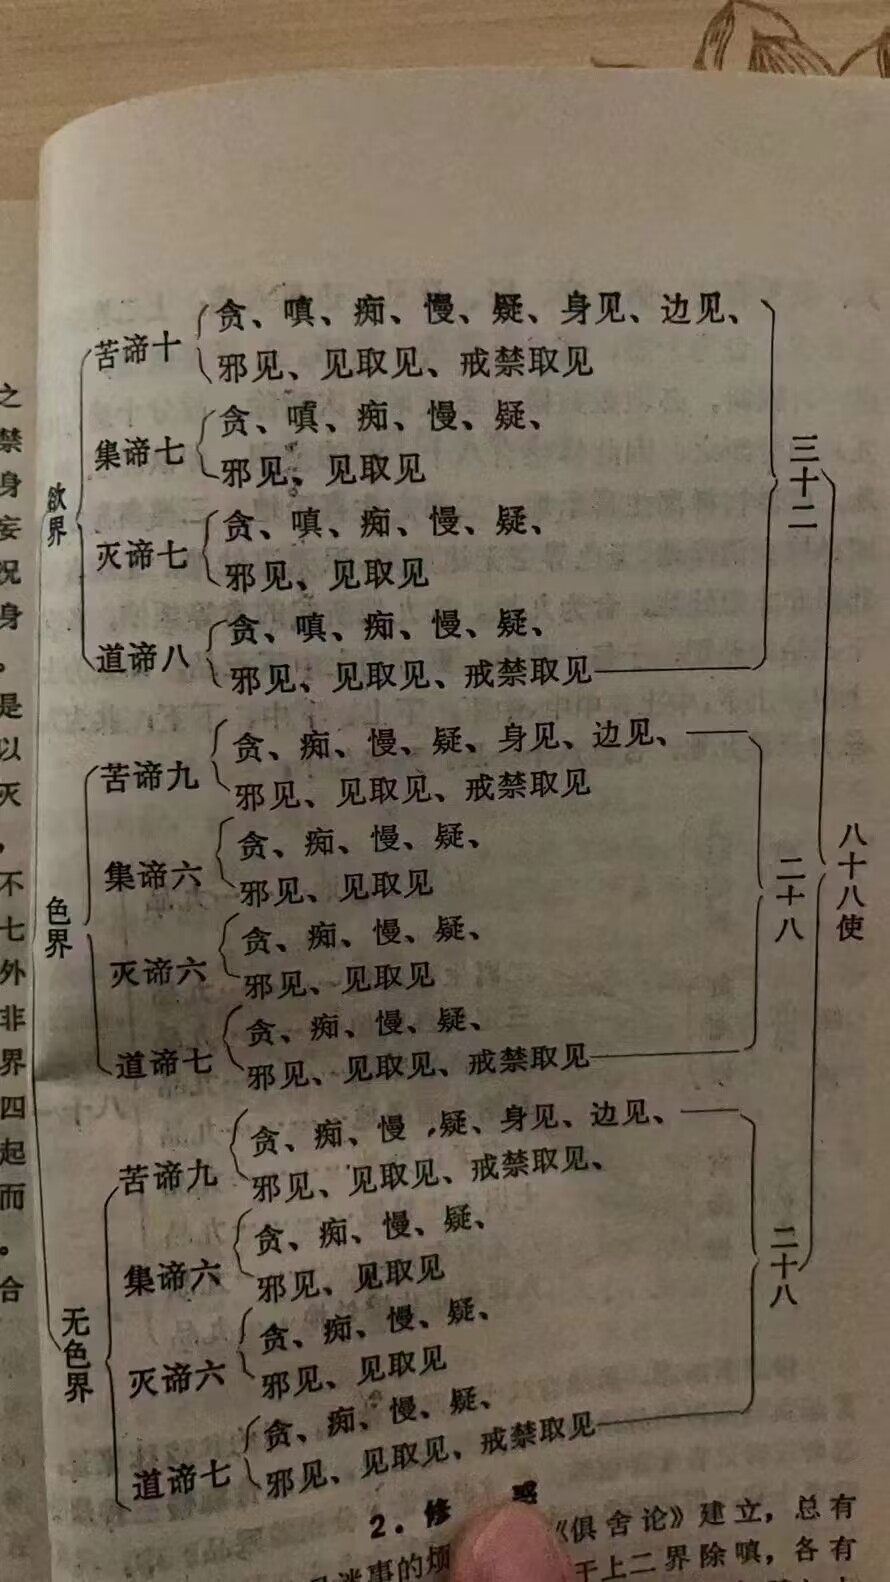 欲界
苦谛十
贪、嗔、痴、慢、疑、身见、边见、
邪见、见取见、戒禁取见
集谛七
贪、嗔、痴、慢、疑、
邪见、见取见
灭谛七
贪、嗔、痴、慢、疑、
邪见、见取见
道谛八
贪、嗔、痴、慢、疑、
邪见、见取见、戒禁取见
三十二
色界
苦谛九
贪、痴、慢、疑、身见、边见、
邪见、见取见、戒禁取见
集谛六
贪、痴、慢、疑、
邪见、见取见
灭谛六
贪、痴、慢、疑、
邪见、见取见
道谛七
贪、痴、慢、疑、
邪见、见取见、戒禁取见
二十八
无色界
苦谛九
贪、痴、慢、疑、身见、边见、
邪见、见取见、戒禁取见、
集谛六
贪、痴、慢、疑、
邪见、见取见
灭谛六
贪、痴、慢、疑、
邪见、见取见
道谛七
贪、痴、慢、疑、
邪见、见取见、戒禁取见
二十八
八十八使
2．修 惑
《俱舍论》建立，总有
迷事的烦 于上二界除嗔，各有
之
禁
身
妄
况
身
。
是
以
灭
，
不
七
外
非
界
四
起
而
。
合